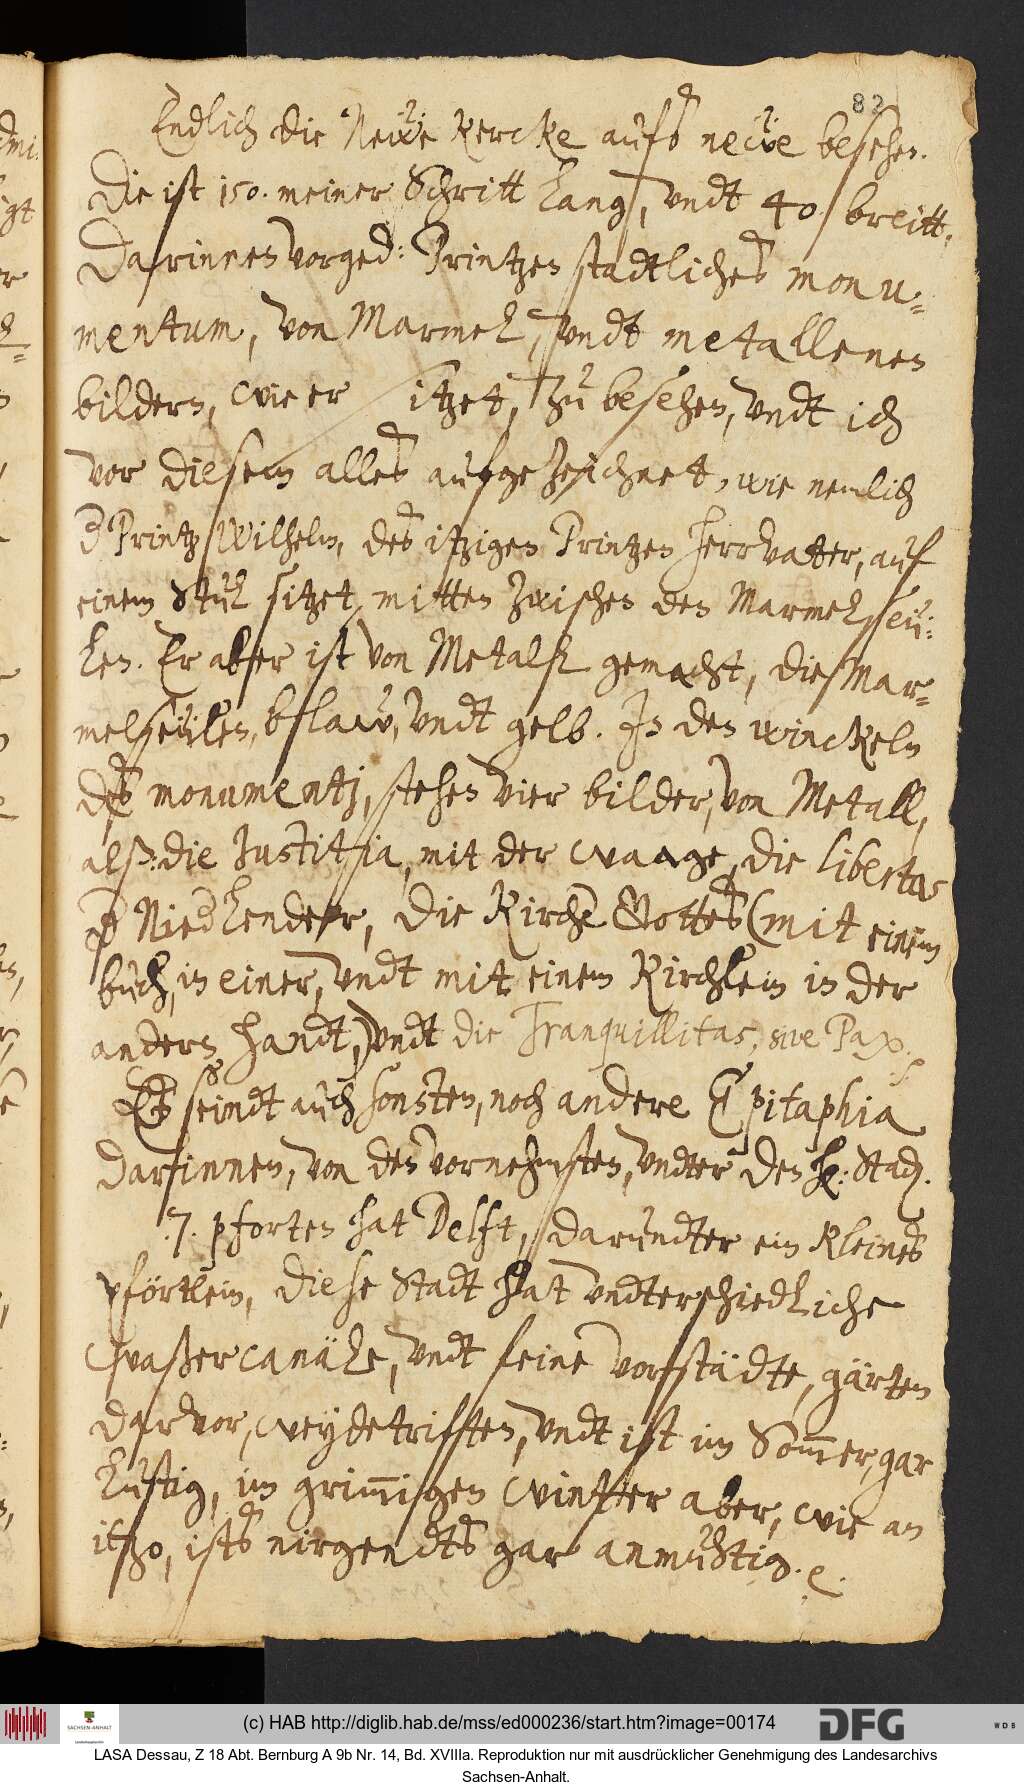 82
Endlich die Neẅe Kercke aufs neẅe besehen.
Die ist 150. meiner Schritt lang, vndt 40 breitt.
Darinnen vorged: Printzen stadtliches monu-
mentum, von Marmel, vndt metallenen
bildern, wie er sitzet, zu besehen, vndt ich
vor diesem alles aufgezeichnet, wie nemlich
Printz Wilhelm, des itzigen Printzen Herrvatter, auf
einem Stul sitzet, mitten zwischen den Marmelseü-
len. Er aber ist von Metall gemacht, die Mar-
melseülen, blaw, vndt gelb. In den winckeln
des monumentj, stehen vier bilder, von Metall,
alß: die Justitzia, mit der waage, die libertas
Niederlender, die Kirche Gottes (mit einem
buch, in einer, vndt mit einem Kirchlein in der
andern handt,) vndt die Tranquillitas, sive Pax.
Es seindt auch sonsten, noch andere Epitaphia
darinnen, von den vornehmsten, vndter den H: Stad.
7. pforten hat Delft, darundter ein kleines
pförtlein, diese Stadt hat vndterschiedliche
waßercanäle, vndt feine vorstädte, gärten
darvor, weydetrifften, vndt ist im Som̅er, gar
lustig, im grim̅igen winter aber, wie an
itzo, ists nirgendts gar anmuhtig. e.
(c) HAB http://diglib.hab.de/mss/ed000236/start.htm?image=00174
SACHSEN-ANHALT
DFG
WDB
LASA Dessau, Z 18 Abt. Bernburg A 9b Nr. 14, Bd. XVIIIa. Reproduktion nur mit ausdrücklicher Genehmigung des Landesarchivs
Sachsen-Anhalt.